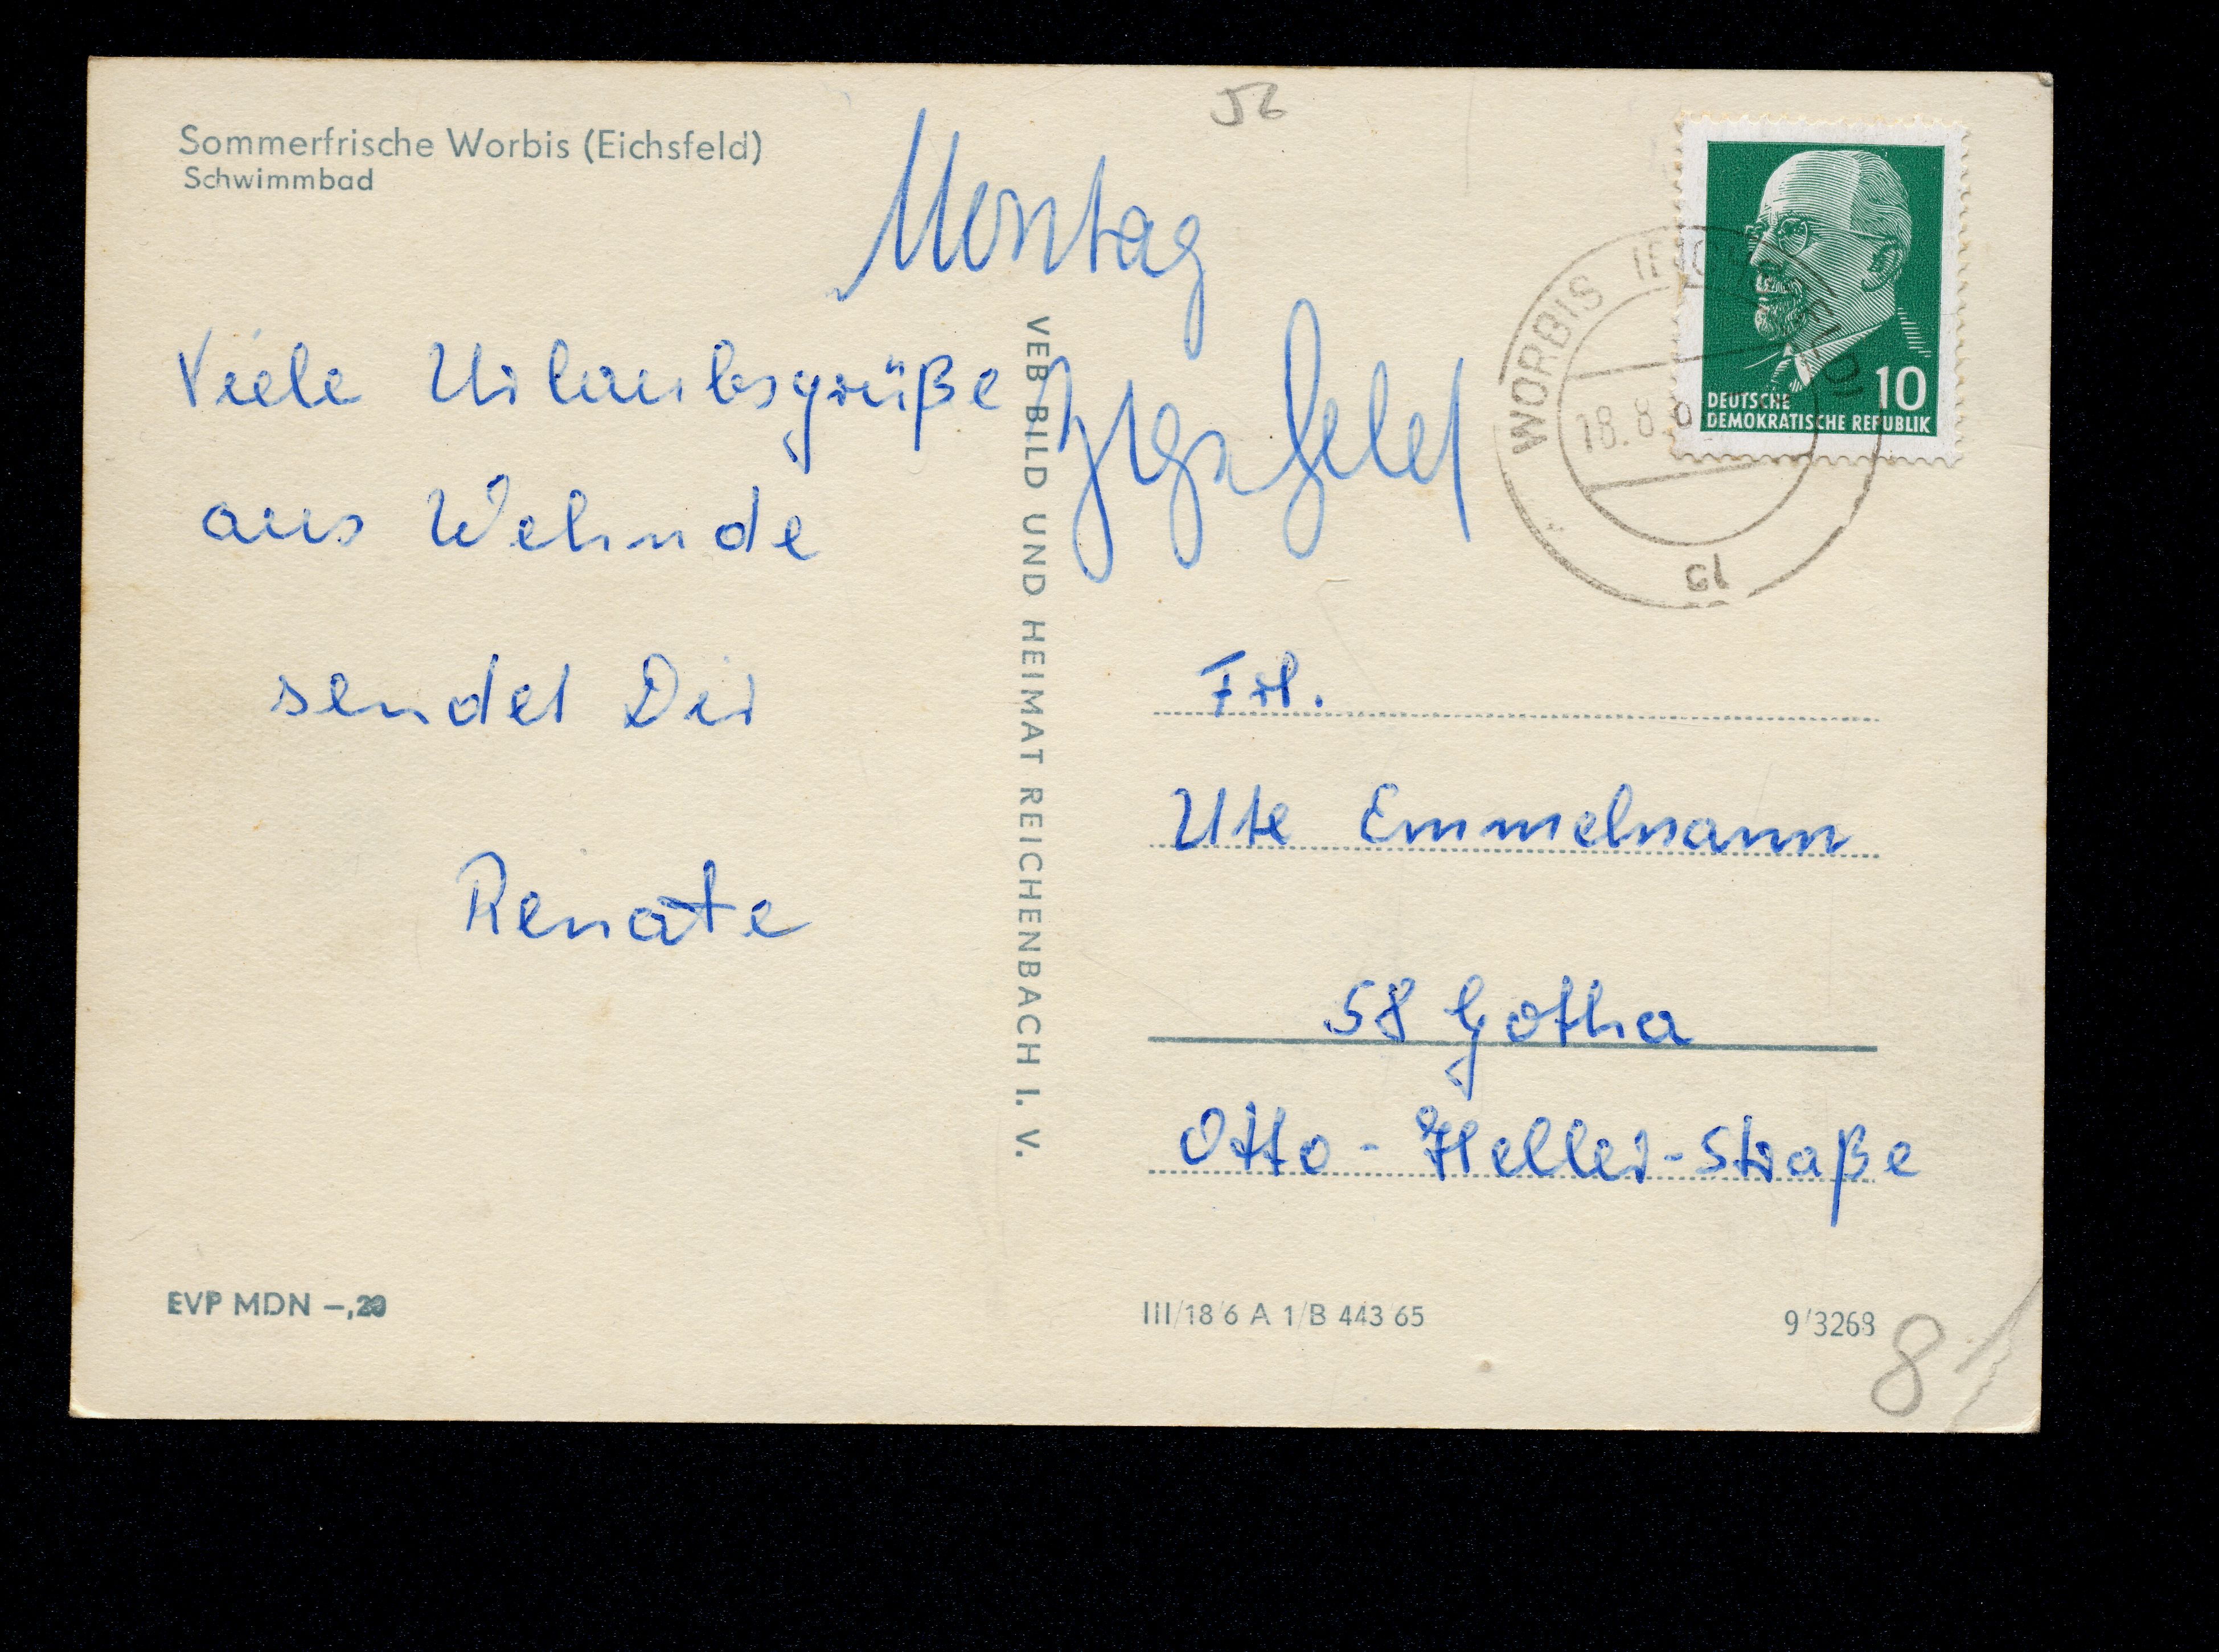 Sommerfrische Worbis (Eichsfeld)
Schwimmbad
56
Montag
Viele Urlaubsgrüße
aus Wehnde
sendet Dir
Renate
VEB BILD UND HEIMAT REICHENBACH I. V.
DEUTSCHE
DEMOKRATISCHE REPUBLIK
10
WORBIS (EICHSFELD)
18.8.6
Frl.
Ute Emmelmann
58 Gotha
Otto-Heller-Straße
EVP MDN –,20
III/18/6 A 1/B 443/65
9/3268
8